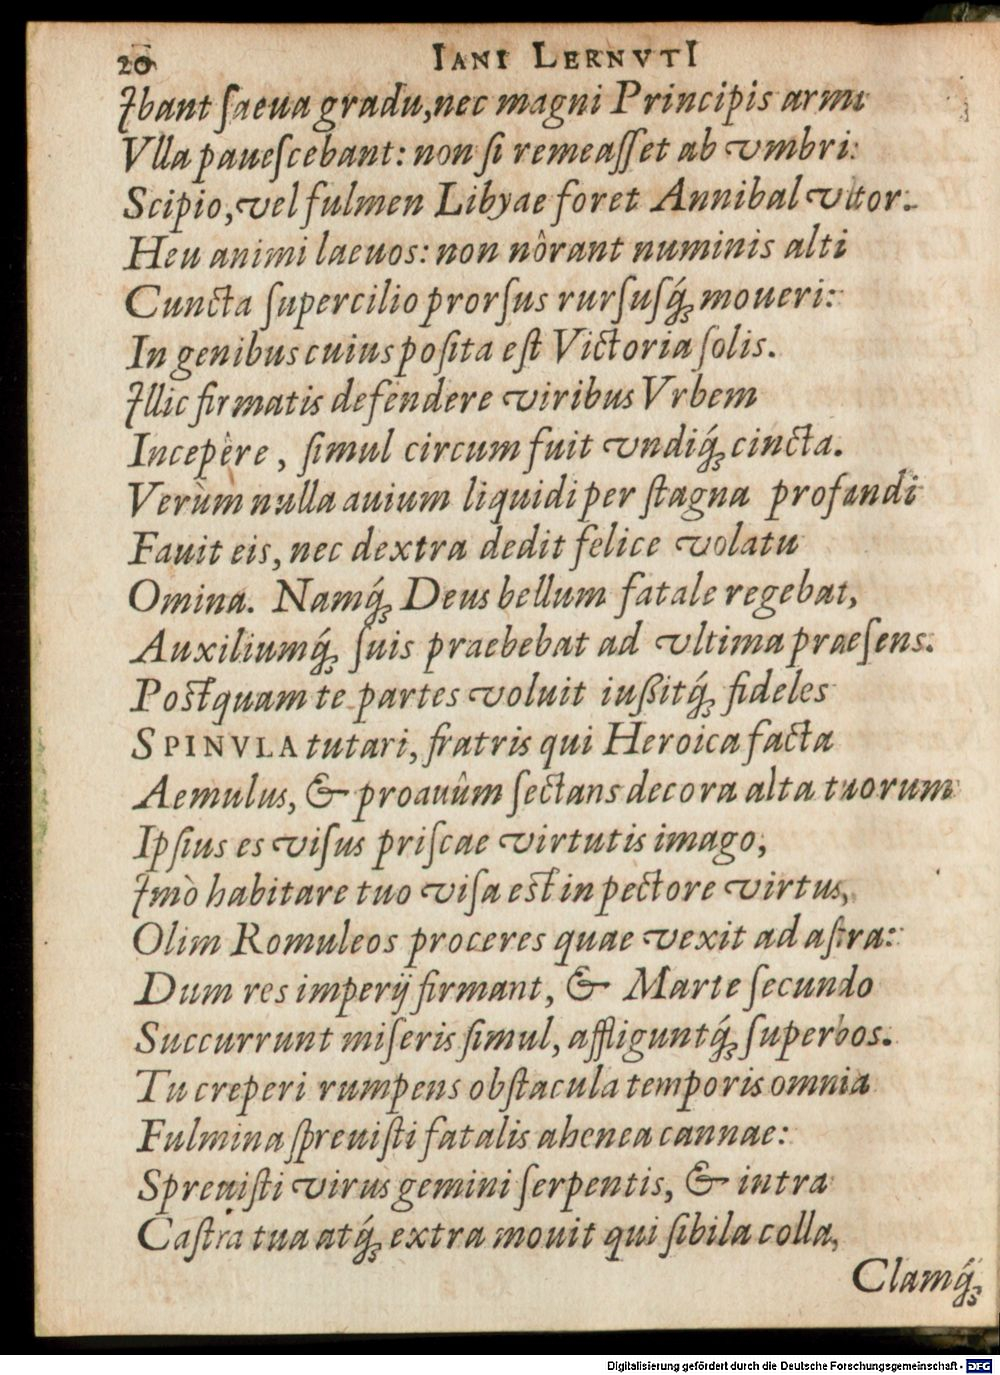 20 IANI LERNVTI
Ibant ſaeua gradu, nec magni Principis arma
Vlla paueſcebant: non ſi remeaſſet ab vmbri:
Scipio, vel fulmen Libyae foret Annibal vltor.
Heu animi laeuos: non nôrant numinis alti
Cuncta ſupercilio prorſus rurſusq́; moueri:
In genibus cuius poſita eſt Victoria ſolis.
Illic firmatis defendere viribus Vrbem
Incepêre, ſimul circum fuit vndiq́; cincta.
Verùm nulla auium liquidi per ſtagna profundi
Fauit eis, nec dextra dedit felice volatu
Omina. Namq́; Deus bellum fatale regebat,
Auxiliumq́; ſuis praebebat ad vltima praeſens.
Poſtquam te partes voluit iußitq́; fideles
SPINVLA tutari, fratris qui Heroica facta
Aemulus, & proauûm ſectans decora alta tuorum
Ipſius es viſus priſcae virtutis imago,
Imò habitare tuo viſa eſt in pectore virtus,
Olim Romuleos proceres quae vexit ad aſtra:
Dum res imperij firmant, & Marte ſecundo
Succurrunt miſeris ſimul, affliguntq́; ſuperbos.
Tu creperi rumpens obſtacula temporis omnia
Fulmina ſpreuiſti fatalis ahenea cannae:
Spreuiſti virus gemini ſerpentis, & intra
Caſtra tua atq́; extra mouit qui ſibila colla,
Clamq́;
Digitalisierung gefördert durch die Deutsche Forschungsgemeinschaft - DFG